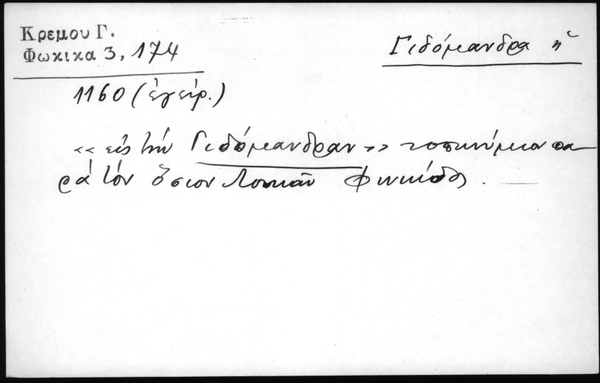 Κρεμου Γ.
Φωκικα 3, 174
Γιδόμανδρα ἡ
1160 (ἐγείρ.)
«εἰς τὴν Γιδόμανδραν» τοπωνύμιον πα-
ρὰ τὸν ὅσιον Λουκᾶν Φωκίδος.